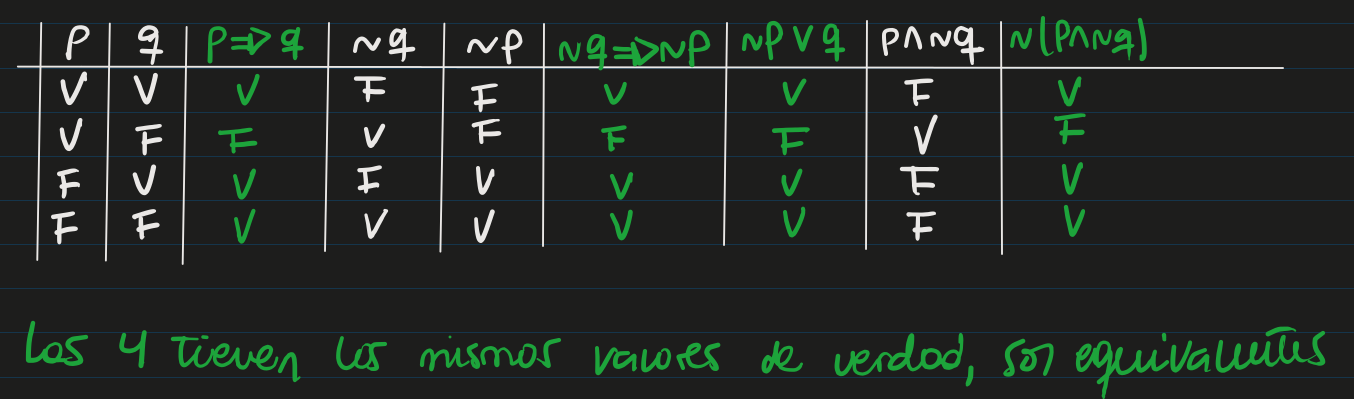 p q p⇒q ~q ~p ~q⇒~p ~p∨q p∧~q ~(p∧~q)
V V V F F V V F V
V F F V F F F V F
F V V F V V V F V
F F V V V V V F V
Los 4 tienen los mismos valores de verdad, son equivalentes